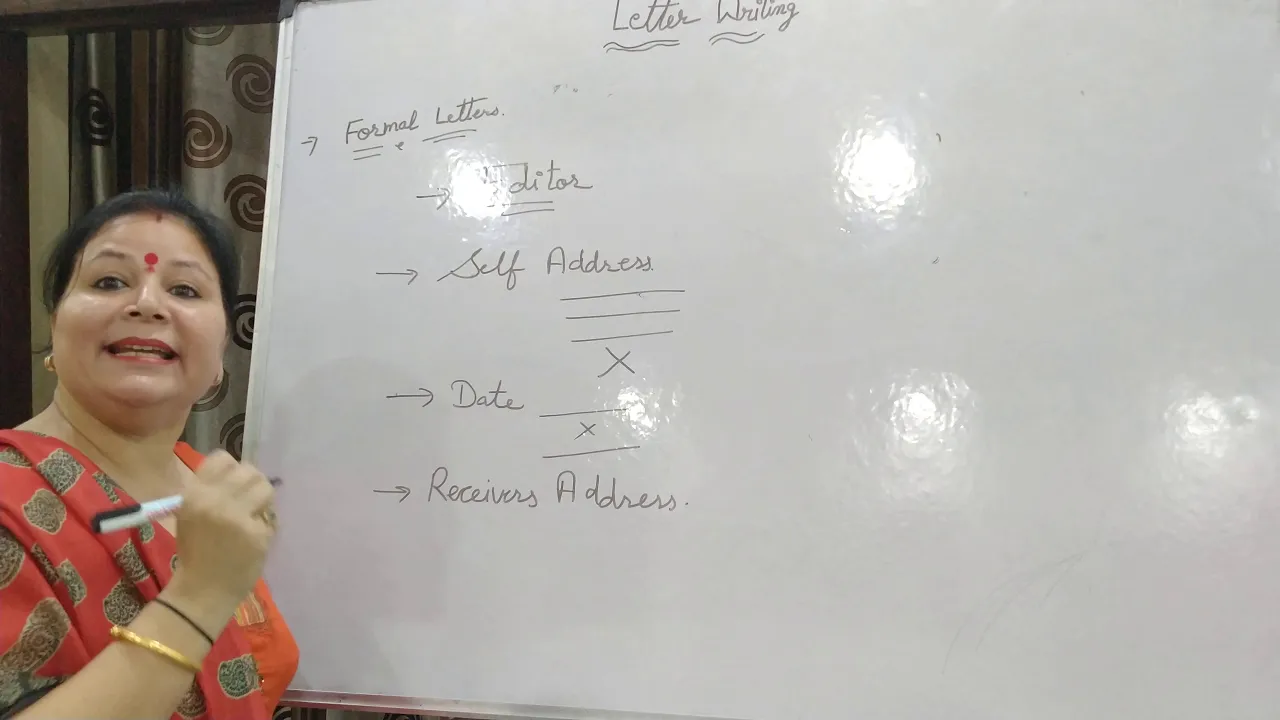 Letter Writing
→ Formal Letters.
→ Editor
→ Self Address.
X
→ Date
x
→ Receivers Address.